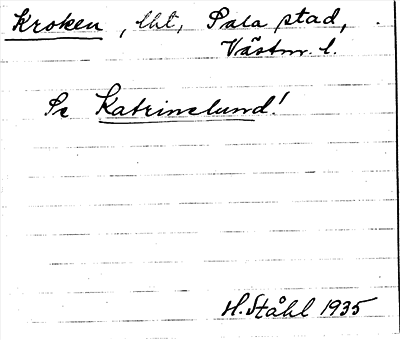 Kroken, lht, Sala stad,
Västm. l.
Se Katrinelund!
H. Ståhl 1935